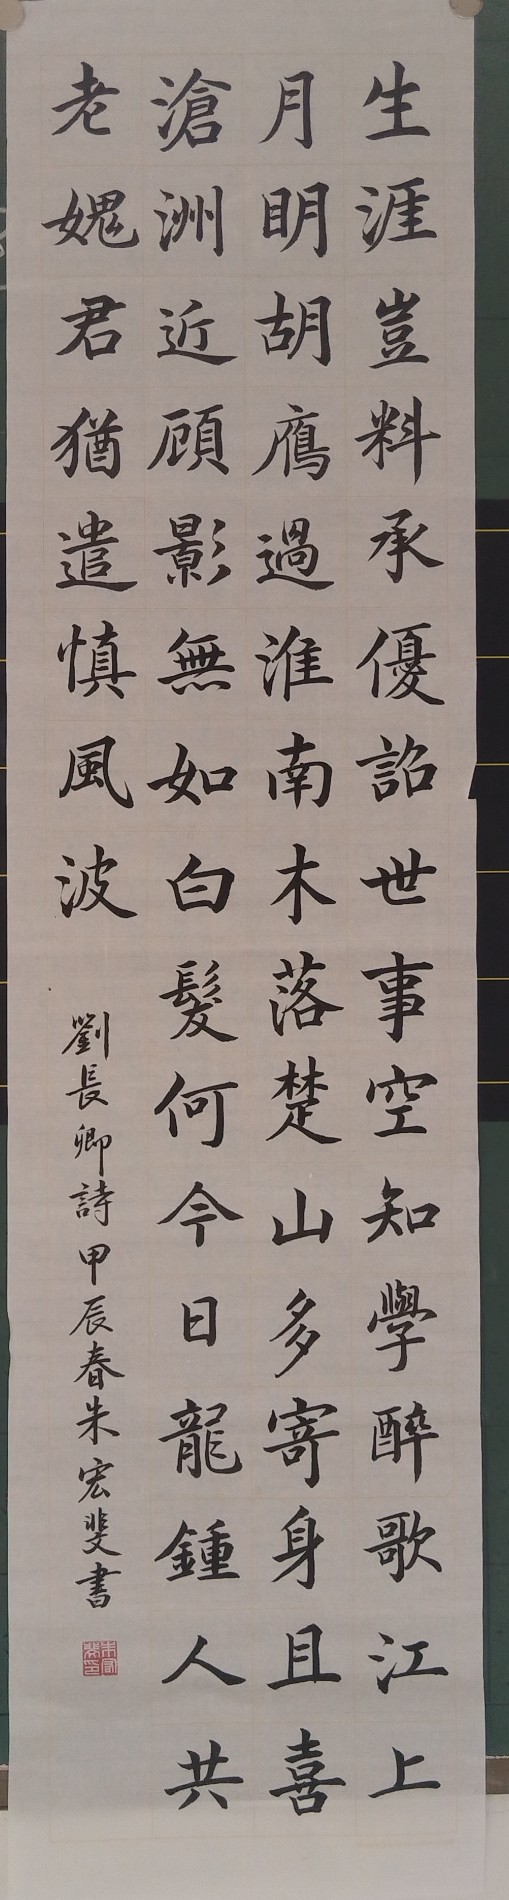 生涯豈料承優詔世事空知學醉歌江上
月明胡鴈過淮南木落楚山多寄身且喜
滄洲近顧影無如白髮何今日龍鍾人共
老媿君猶遣慎風波
劉長卿詩甲辰春朱宏斐書